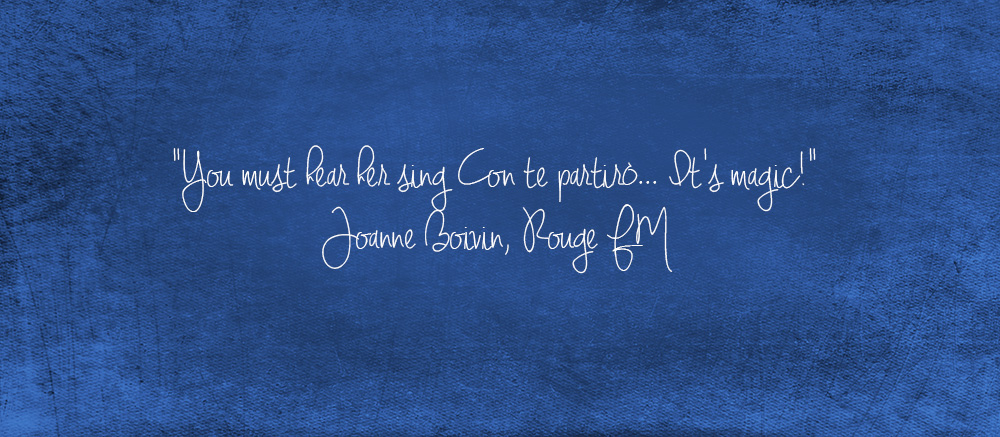 "You must hear her sing Con te partirò... It's magic!"
Joanne Boivin, Rouge FM